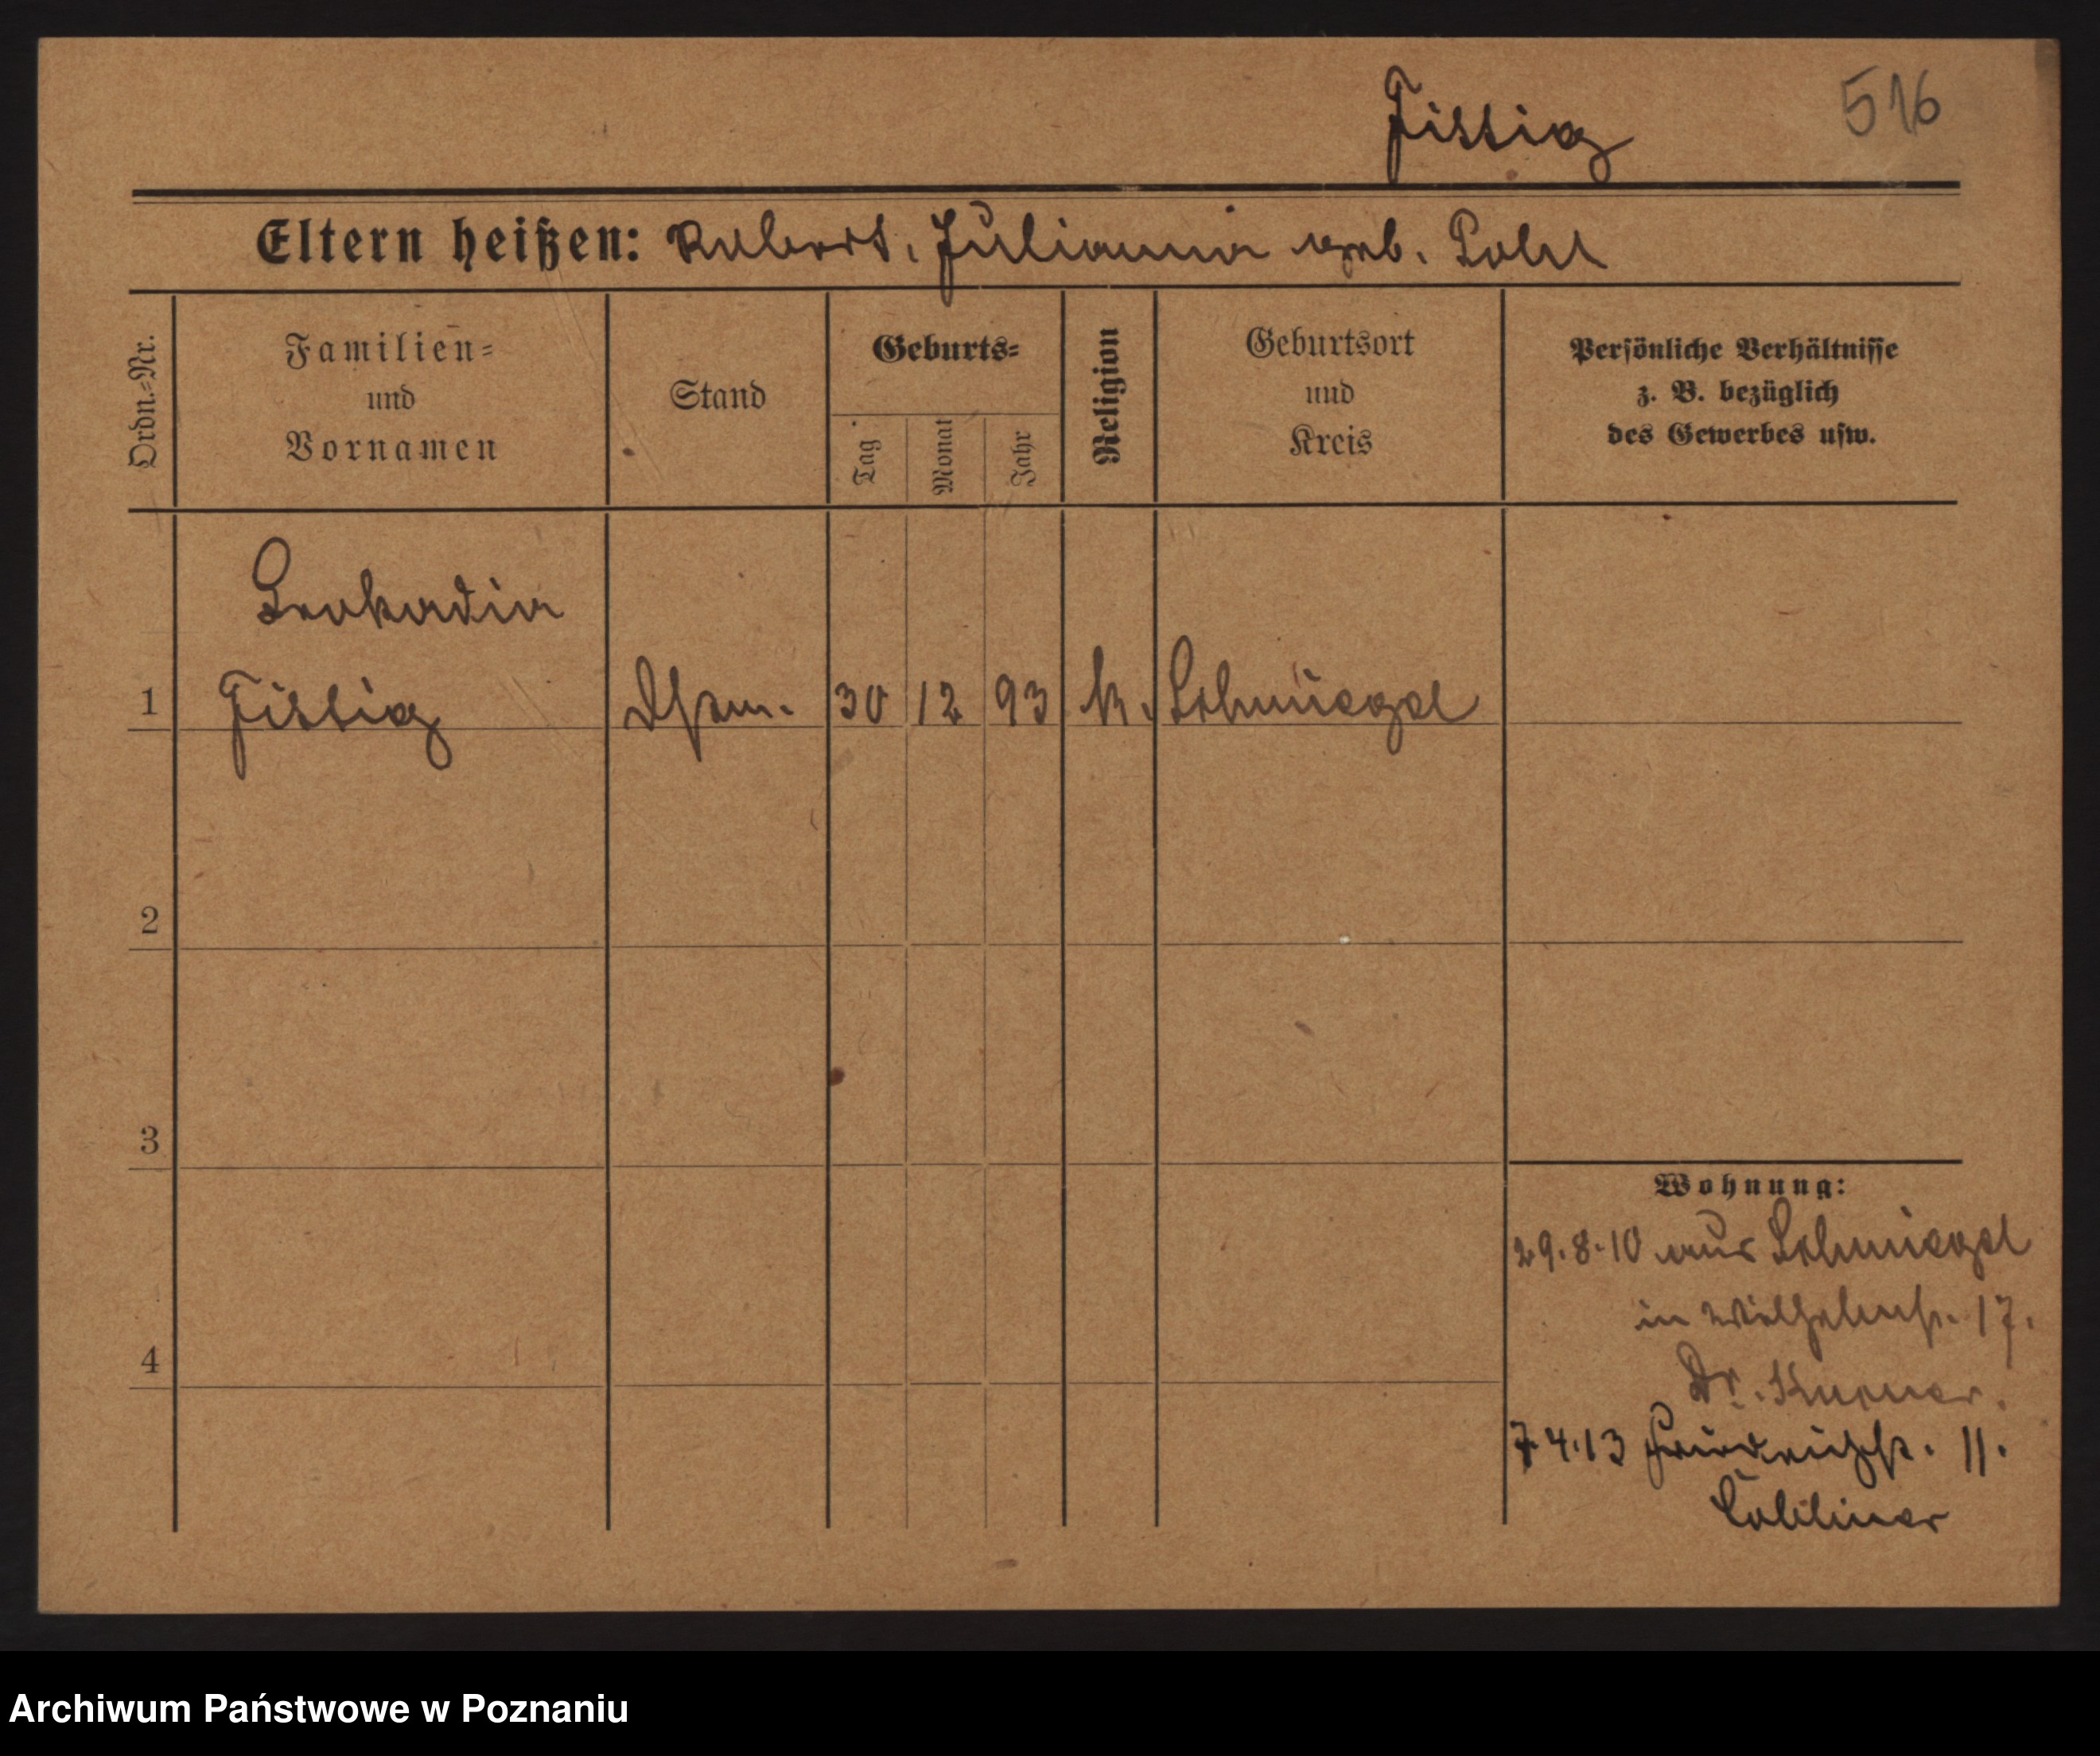 Fissig
516
Eltern heißen: Robert, Julianna geb. Pohl
Ordn.=Nr.
Familien=
und
Vornamen
Stand
Geburts=
Tag
Monat
Jahr
Religion
Geburtsort
und
Kreis
Persönliche Verhältnisse
z. B. bezüglich
des Gewerbes usw.
Leokadia
1 Fissig 30 12 93 k. Schmiegel
2
3
Wohnung:
29.8.10 aus Schmiegel
in Wilhelmst. 17.
4
Dr.
7.4.13 Friedrichst. 11.
Archiwum Państwowe w Poznaniu